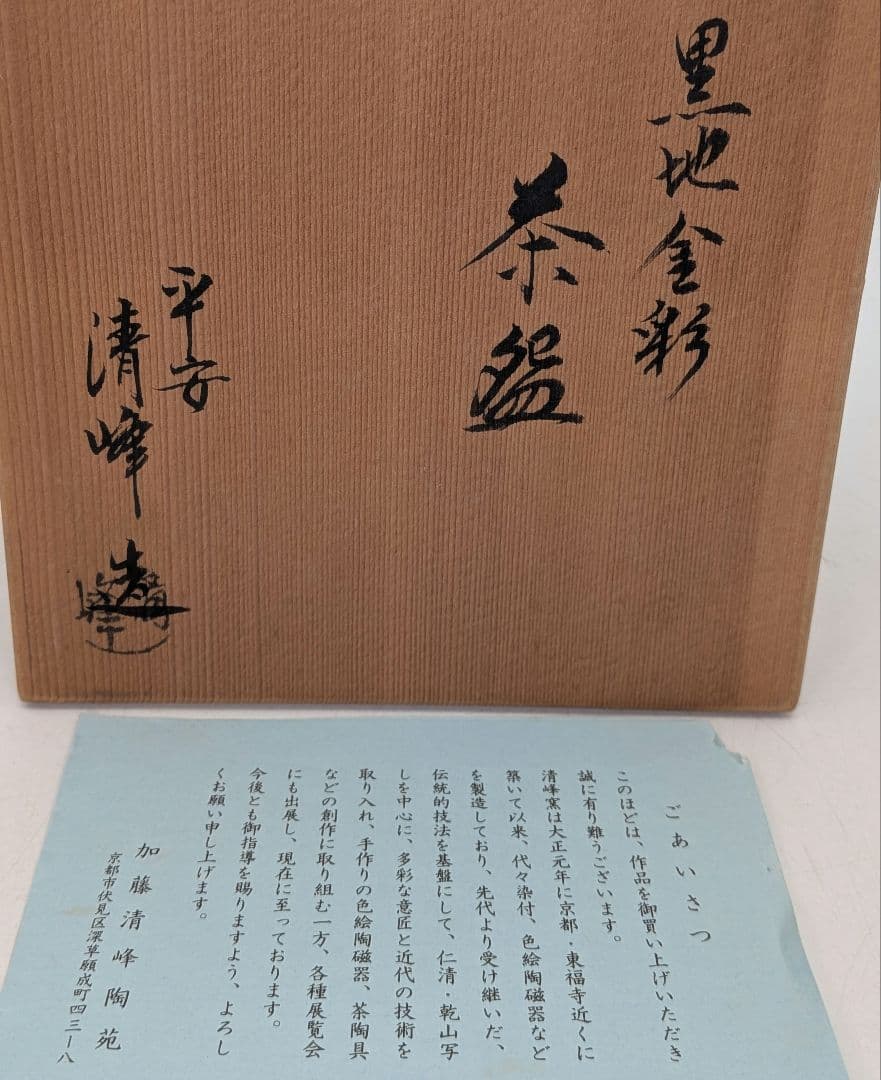 黒地金彩
茶盌
平安
清峰造
ごあいさつ
このほどは、作品を御買い上げいただき
誠に有り難うございます。
清峰窯は大正元年に京都・東福寺近くに
築いて以来、代々染付、色絵陶磁器など
を製造しており、先代より受け継いだ、
伝統的技法を基盤にして、仁清・乾山写
しを中心に、多彩な意匠と近代の技術を
取り入れ、手作りの色絵陶磁器、茶陶具
などの創作に取り組む一方、各種展覧会
にも出展し、現在に至っております。
今後とも御指導を賜りますよう、よろし
くお願い申し上げます。
加藤清峰陶苑
京都市伏見区深草願成町四三ー八